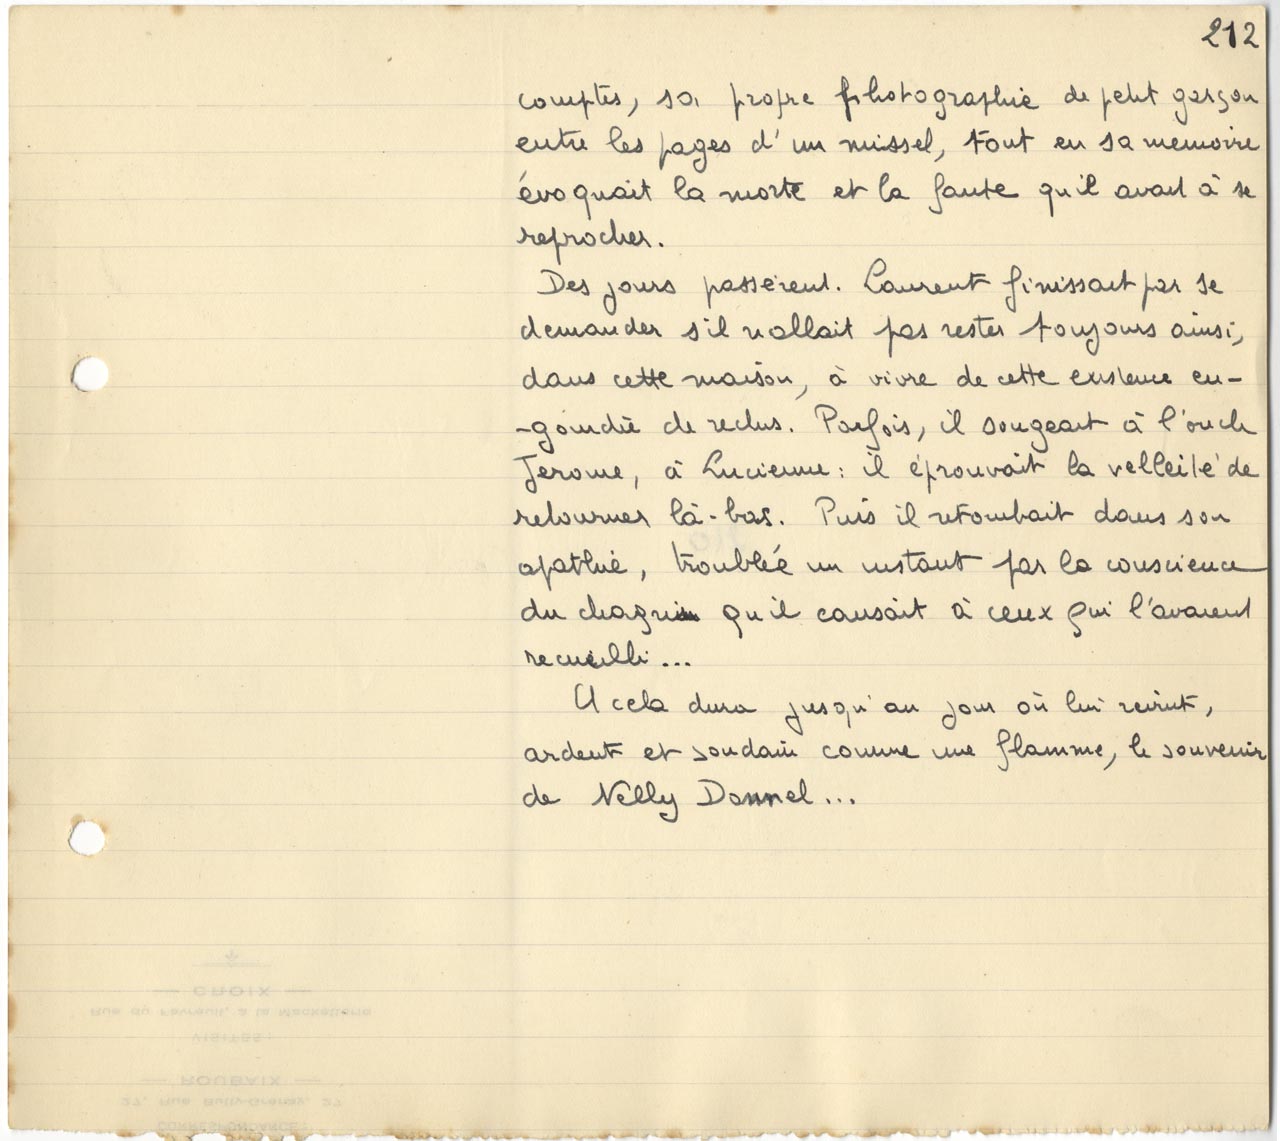 212
comptes, sa propre photographie de petit garçon
entre les pages d'un missel, tout en sa memoire
évoquait la morte et la faute qu'il avait à se
reprocher.
Des jours passèrent. Laurent finissait par se
demander s'il n'allait pas rester toujours ainsi,
dans cette maison, à vivre de cette existence en-
-gourdie de reclus. Parfois, il songeait à l'oncle
Jerome, à Lucienne : il éprouvait la velleité de
retourner là-bas. Puis il retombait dans son
apathie, troublée un instant par la conscience
du chagrin qu'il causait à ceux qui l'avaient
recueilli...
Et cela dura jusqu'au jour où lui revint,
ardent et soudain comme une flamme, le souvenir
de Nelly Donnel...
CROIX
Rue du Fevreuil, à la Mackellerie
VISITES:
ROUBAIX
27, Rue Bully-Grenay, 27
CORRESPONDANCE: